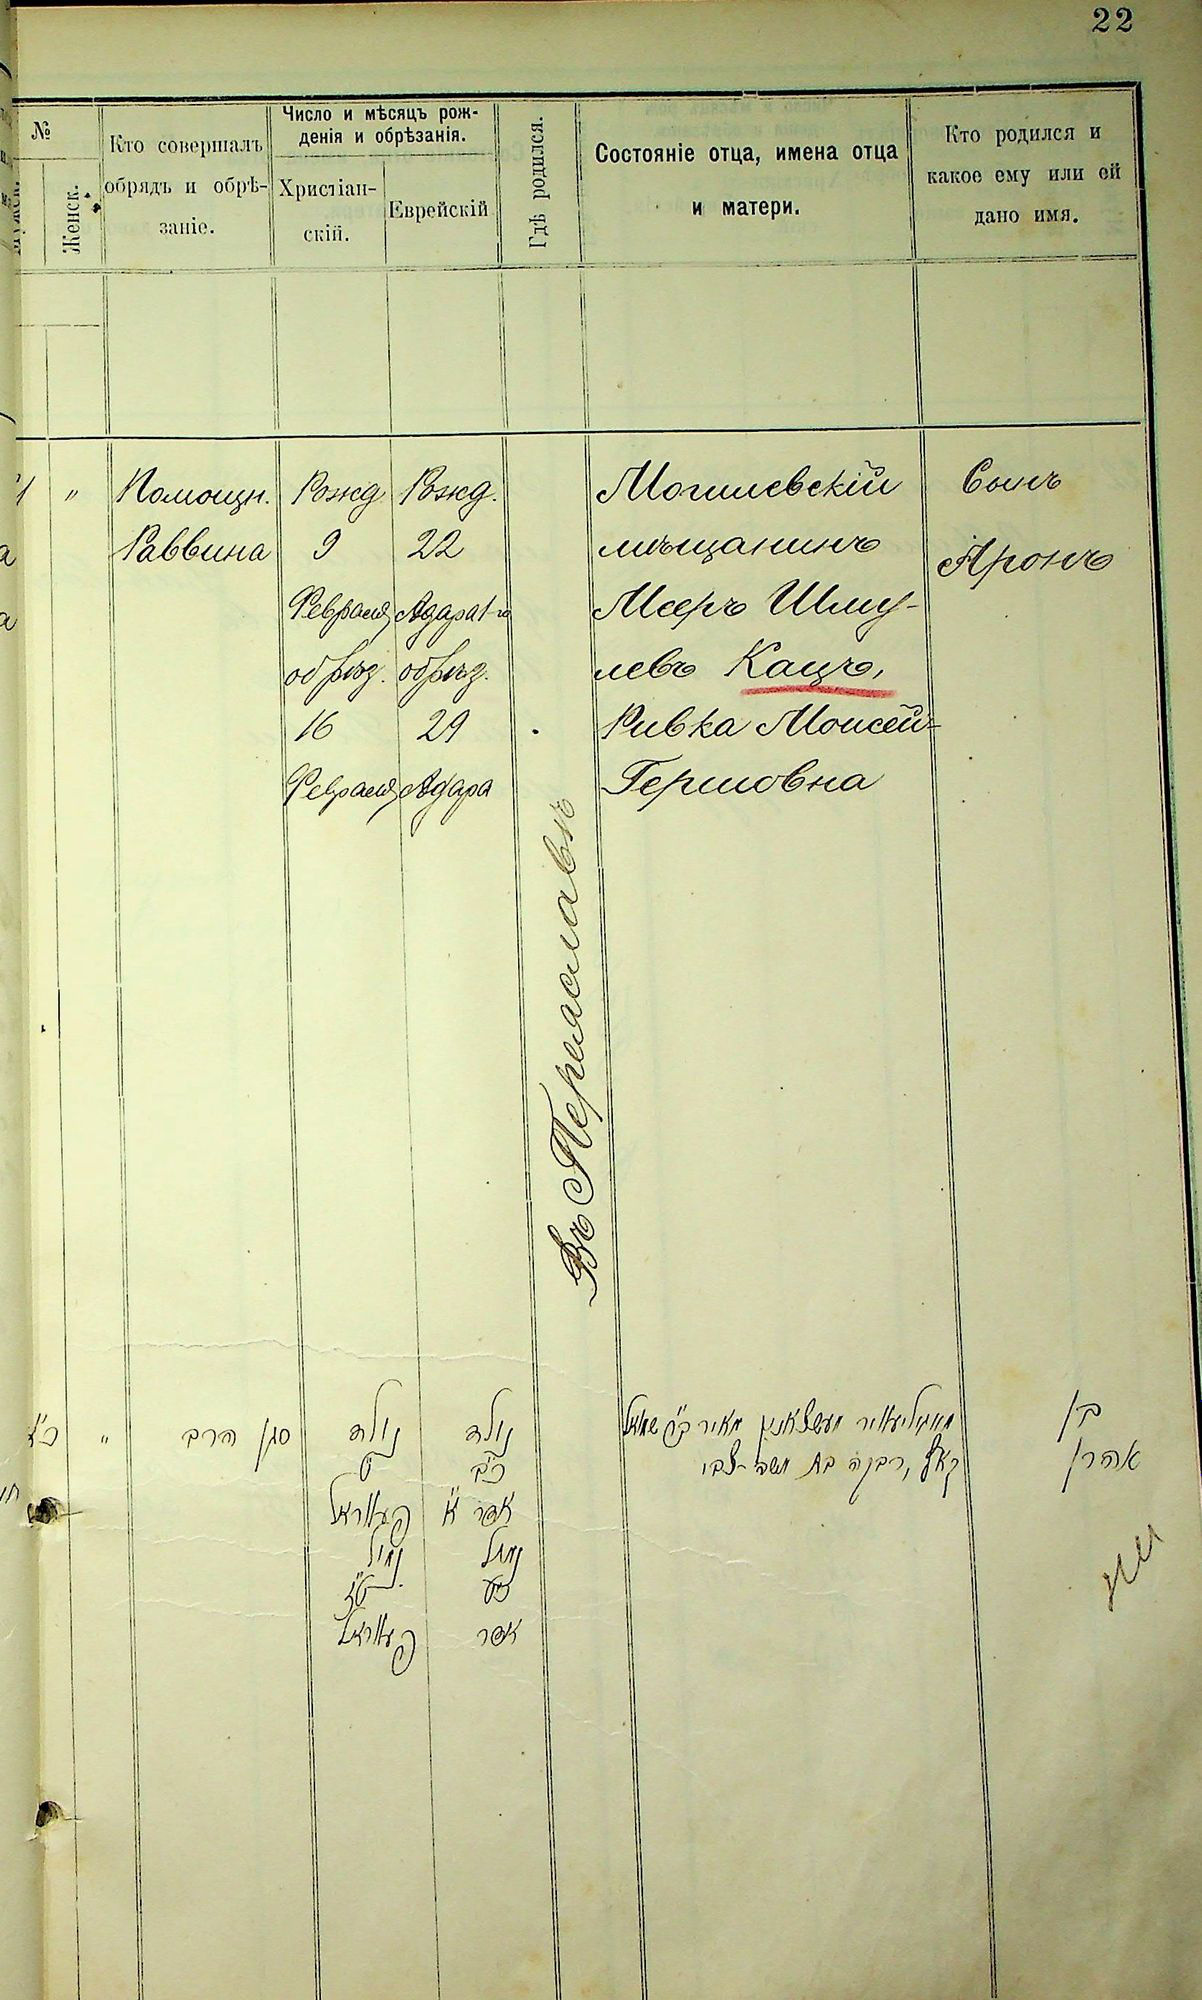 22
№
Женск.
Кто совершалъ
обрядъ и обрѣ-
заніе.
Число и мѣсяцъ рож-
денія и обрѣзанія.
Христіан-
скій.
Еврейскій
Гдѣ родился.
Состояніе отца, имена отца
и матери.
Кто родился и
какое ему или ей
дано имя.
"
Помощн.
Раввина
Рожд
9
Февраля
обрѣз.
16
Февраля
Рожд.
22
Адара 1-го
обрѣз.
29
Адара
Въ Переяславѣ
Могилевскій
мѣщанинъ
Мееръ Шму-
левъ Кацъ,
Ривка Мойсей-
Гершовна
Сынъ
Аронъ
"
סגן הרב
נולד
ט
פעװראל
נימול
ט"ז
פעװראל
נולד
כ"ב
אדר א'
נימול
כ"ט
אדר
מעשצאנין מאיר ב"ר שמואל
קאץ, רבקה בת משה צבי
בן
אהרן